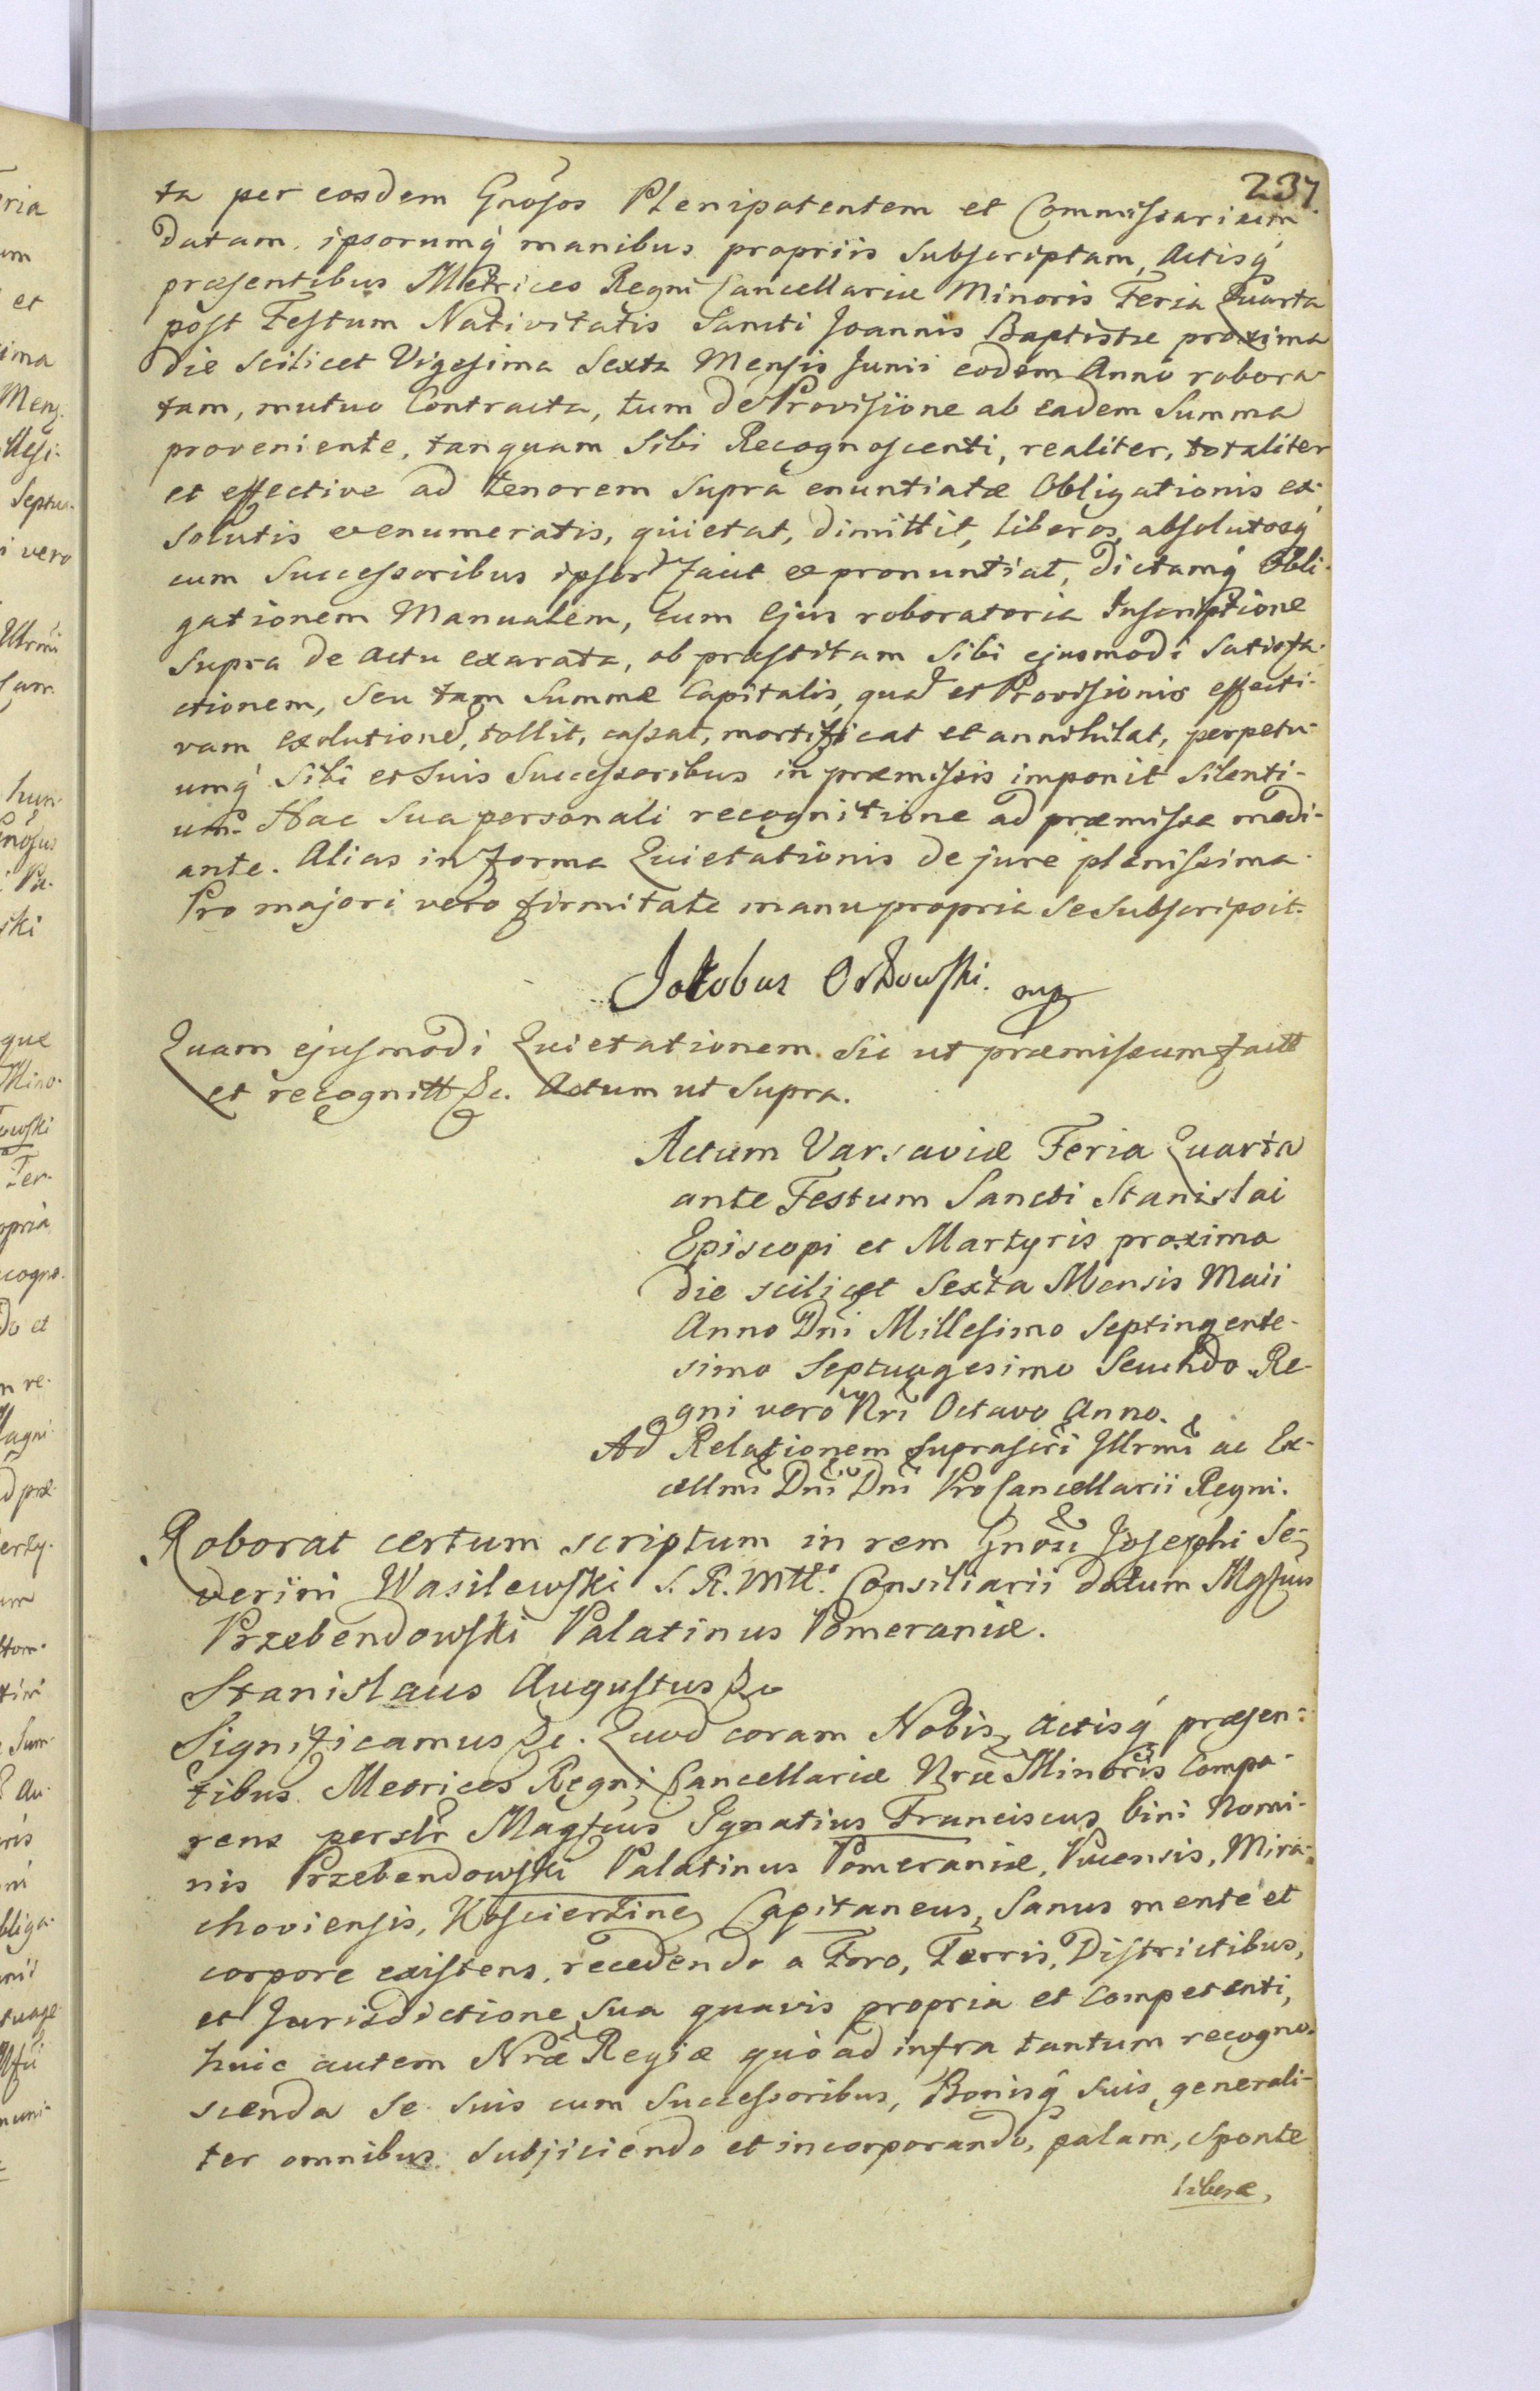 237.
ta per eosdem Gnosos Plenipotentem et Commissarium
datam ipsorumq́ manibus propriis subscriptam, Actisq́
præsentibus Metrices Regni Cancellariæ Minoris Feria Quarta
post Festum Nativitatis Sancti Joannis Baptistæ proxima
die scilicet Vigesima Sexta Mensis Junii eodem Anno robora-
tam, mutuo Contracta, tum de Provisione ab eadem Summa
proveniente, tanquam Sibi Recognoscenti, realiter, totaliter
et effective ad tenorem supra enuntiatæ Obligationis ex-
solutis enumeratis, quietat, dimittit, liberos, absolutosq́
cum Successoribus facit pronuntiat, dictamq́ Obli-
gationem Manualem, cum Ejus roboratoria Inscriptione
supra de actu exarata, ob præstitam Sibi ejusmodi Satisfa-
ctionem, seu tam Summæ Capitalis, et Provisionis effecti-
vam tollit, cassat, mortificat et annihilat, perpetu-
umq́ Sibi et Suis Successoribus in præmissis imponit Silenti-
um. Hac Sua personali recognitione ad præmissa medi-
ante. Alias in forma Quietationis de jure plenissima.
Pro majori vero firmitate manu propria se subscripsit.
Jakobus mp
Quam ejusmodi Quietationem sic ut præmissum facitt
et recognitt &c. Actum ut Supra.
Actum Varsaviæ Feria Quarta
ante Festum Sancti Stanislai
Episcopi et Martyris proxima
die scilicet Sexta Mensis Maii
Anno Dni Millesimo Septingente-
simo Septuagesimo Secundo Re-
gni vero Nri Octavo Anno.
Ad Relationem suprascri Illrmi ac Ex-
cellmi Dni Dni Pro Cancellarii Regni.
Roborat certum scriptum in rem Gnosi Josephi Se-
verini Wasilewski S. R. Mttis Consiliarii datum Mgfcus
Przebendowski Palatinus Pomeraniæ.
Stanislaus Augustus &c
Significamus &c. Quod coram Nobis, Actisq́ præsen-
tibus Metrices Regni Cancellariæ Nræ Minoris Compa-
rens perslr Magfcus Ignatius Franciscus bini Nomi-
nis Przebendowski Palatinus Pomeraniæ, Pucensis, Mira-
choviensis, Capitaneus, Sanus mente et
corpore existens, recedendo a Foro, Terris, Districtibus,
et Jurisdictione Sua quavis propria et Competenti,
huic autem Nræ Regiæ quò ad infra tantum recogno-
scenda se suis cum Successoribus, Bonisq́ suis generali-
ter omnibus subjiciendo et incorporando, palam, sponte
libere,